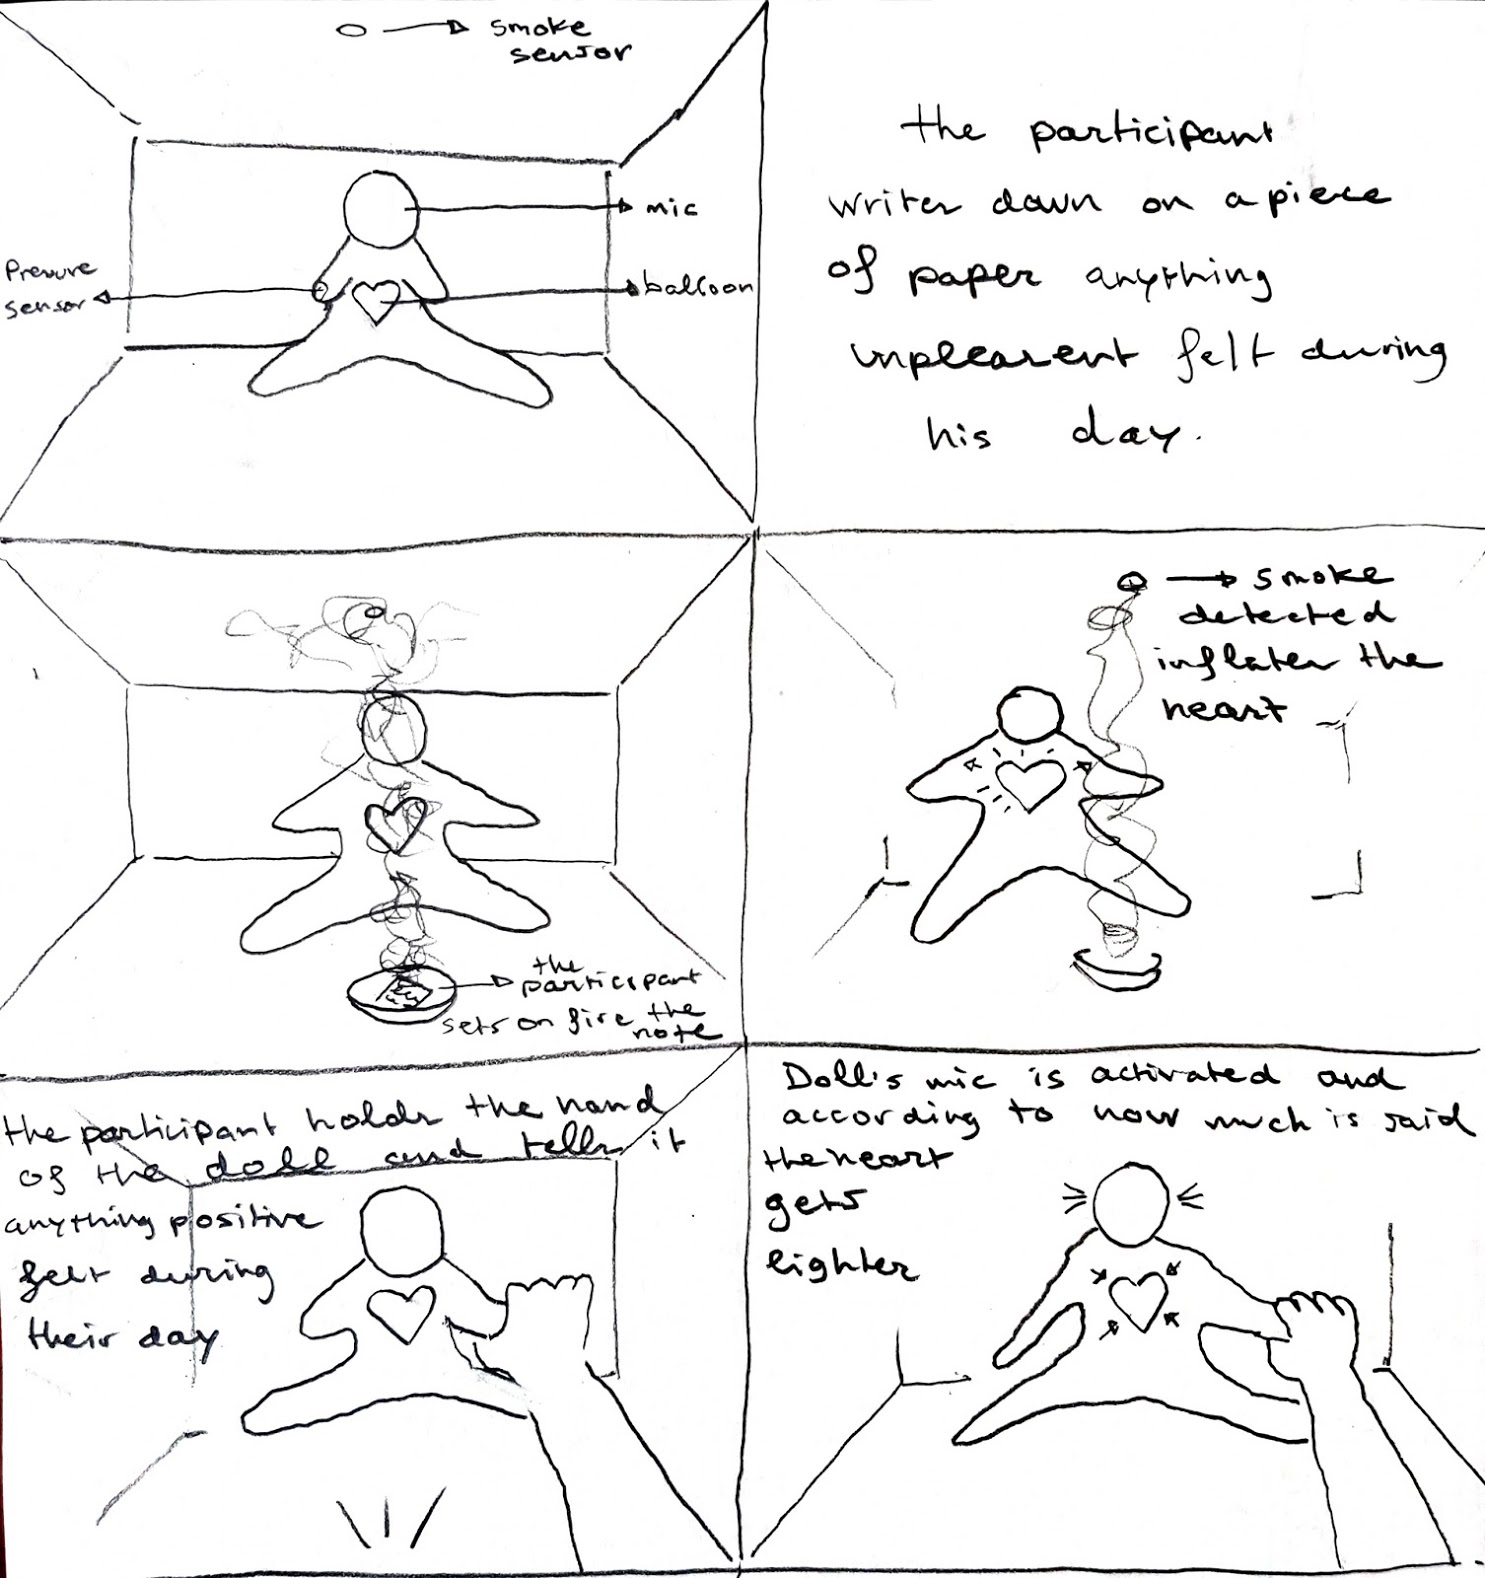 smoke
sensor
mic
Pressure
sensor
balloon
the participant
writes down on a piece
of paper anything
unpleasent felt during
his day.
the
participant
sets on fire the
note
smoke
detected
inflates the
heart
the participant holds the hand
of the doll and tells it
anything positive
felt during
their day
Doll's mic is activated and
according to how much is said
the heart
gets
lighter